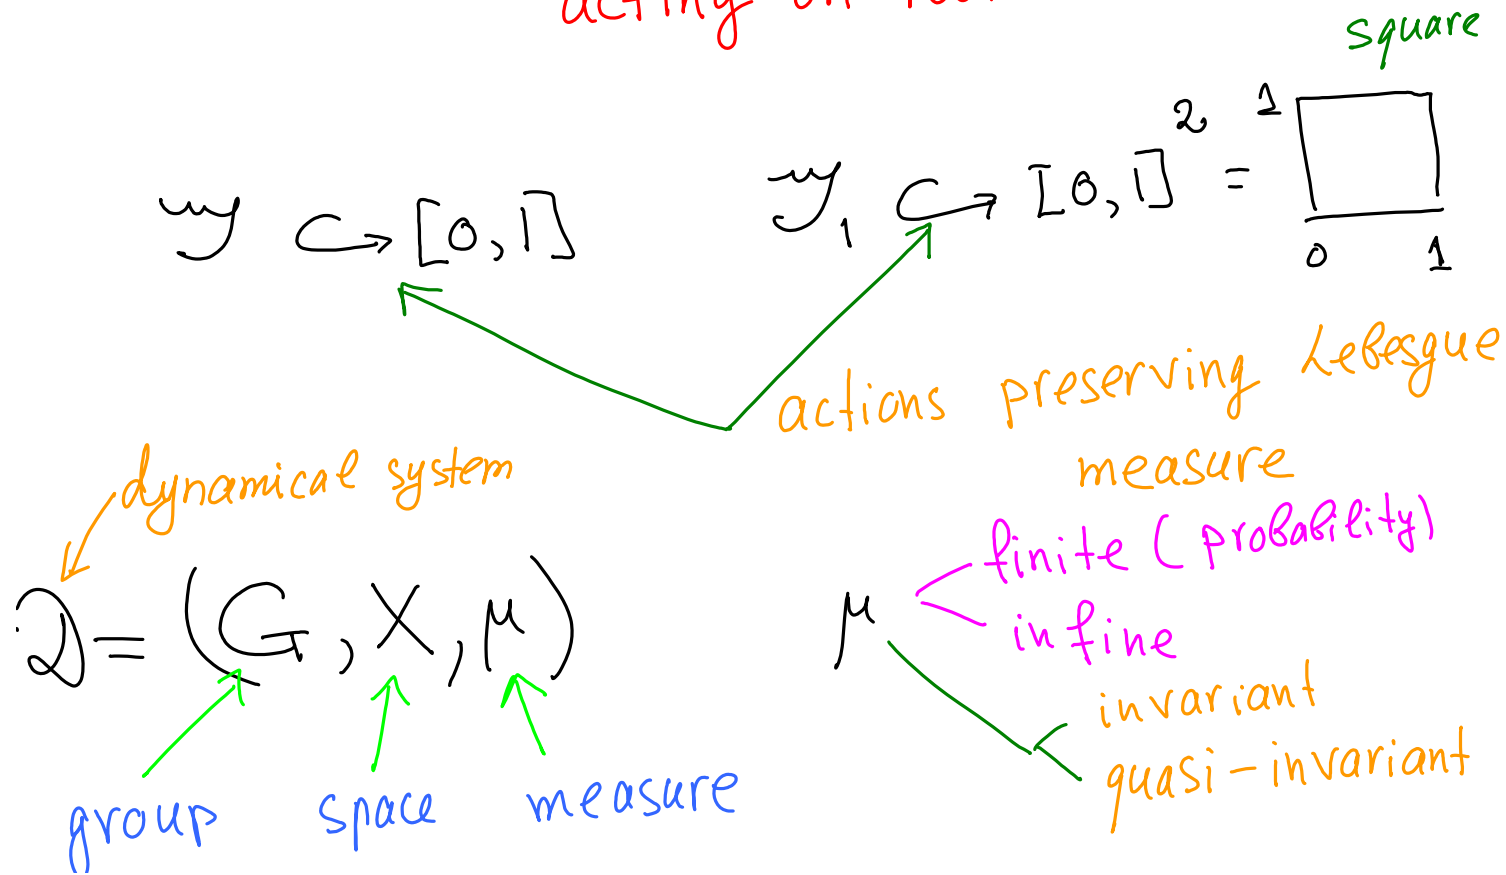 acting on
square
𝒴 ↪ [0,1]
𝒴₁ ↪ [0,1]² =
1
0 1
actions preserving Lebesgue
measure
dynamical system
𝒟 = (G, X, μ)
group space measure
μ
finite (probability)
infine
invariant
quasi-invariant